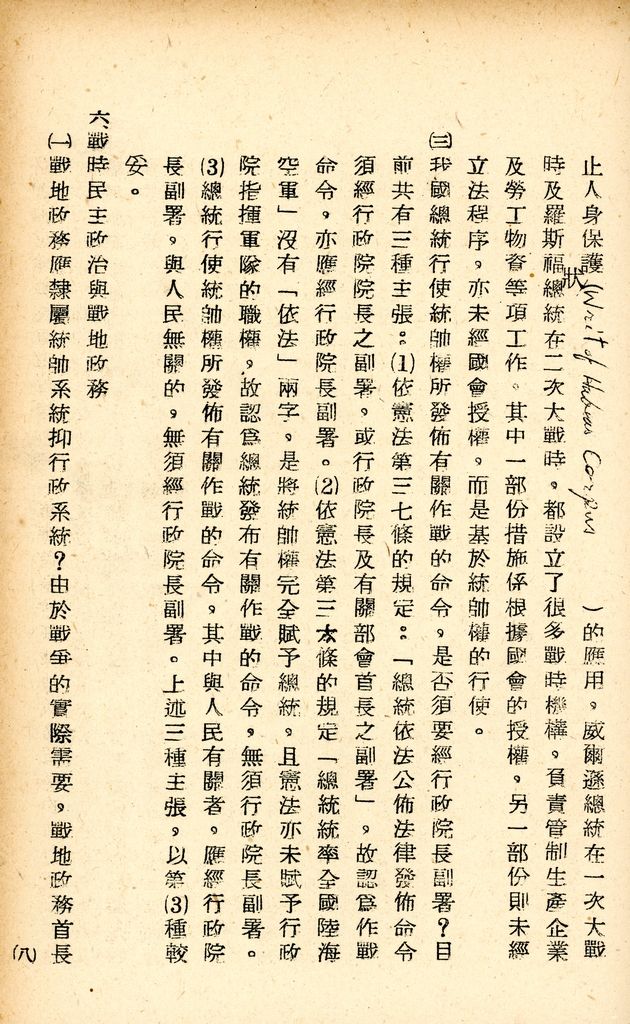 止人身保護狀(Writ of Habeas Corpus)的應用。威爾遜總統在一次大戰
時及羅斯福總統在二次大戰時。都設立了很多戰時機構。負責管制生產企業
及勞工物資等項工作。其中一部份措施係根據國會的授權。另一部份則未經
立法程序。亦未經國會授權。而是基於統帥權的行使。
㈢我國總統行使統帥權所發佈有關作戰的命令。是否須要經行政院長副署?目
前共有三種主張:(1)依憲法第三七條的規定:「總統依法公佈法律發佈命令
須經行政院院長之副署。或行政院長及有關部會首長之副署」。故認爲作戰
命令。亦應經行政院長副署。(2)依憲法第三六條的規定「總統統率全國陸海
空軍」沒有「依法」兩字。是將統帥權完全賦予總統。且憲法亦未賦予行政
院指揮軍隊的職權。故認爲總統發布有關作戰的命令。無須行政院長副署。
(3)總統行使統帥權所發佈有關作戰的命令。其中與人民有關者。應經行政院
長副署。與人民無關的。無須經行政院長副署。上述三種主張。以第(3)種較
妥。
六、戰時民主政治與戰地政務
㈠戰地政務應隸屬統帥系統抑行政系統?由於戰爭的實際需要。戰地政務首長
(八)